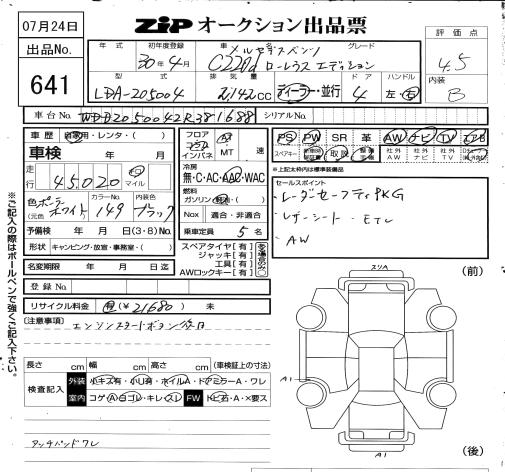 07月24日
ZIP オークション出品票
出品No.
641
年式 初年度登録 車名 グレード
30年4月
メルセデスベンツ
C220d ローレウスエディション
評価点
4.5
内装
B
型式 排気量 ドア ハンドル
LDA-205004 2,142cc ディーラー・並行 4 左・右
車台No. WDD2050042R381688 シリアルNo.
車歴 自家用・レンタ・( )
車検 年 月
走行 45,020 km マイル
色 ポーラーホワイト カラーNo. 149 内装色 ブラック
(元色)
予備検 年 月 日(3・8)No.
形状 キャンピング・放宣・事務室・( )
名変期限 年 月 日迄
登録No.
リサイクル料金 有(¥21680) 未
フロア コラム インパネ AT MT 速
冷房 無・C・AC・AAC・WAC
燃料 ガソリン・軽油・( )
Nox 適合・非適合
乗車定員 5名
スペアタイヤ[有]
ジャッキ[有]
工具[有]
AWロックキー[有]
PS PW SR 革 AW ナビ TV エアB
スペアキー 取説 社外AW 社外ナビ 社外TV
※上記太枠内は標準装備品
セールスポイント
レーダーセーフティPKG
レザーシート・ETC
・AW
[注意事項]
長さ cm 幅 cm 高さ cm (車検証上の寸法)
検査記入 外装 小キズ有・小凹有・ホイルA・ドアミラーA・ワレ
室内 コゲA・ヨゴレ・キレ・スレ FW トビ石・A・×要ス
タッチパッドワレ
スリA
(前)
A1
A1
(後)
※ご記入の際はボールペンで強くご記入下さい。